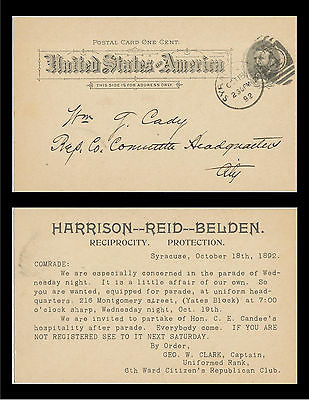 POSTAL CARD ONE CENT.
United States of America
THIS SIDE IS FOR ADDRESS ONLY.
Wm T. Cady
Rep. Co. Committee Headquarters
City
HARRISON--REID--BELDEN.
RECIPROCITY. PROTECTION.
Syracuse, October 18th, 1892.
COMRADE:
We are especially concerned in the parade of Wed-
nesday night. It is a little affair of our own. So
you are wanted, equipped for parade, at uniform head-
quarters. 216 Montgomery street, (Yates Block) at 7:00
o'clock sharp, Wednesday night, Oct. 19th.
We are invited to partake of Hon. C. E. Candee's
hospitality after parade. Everybody come. IF YOU ARE
NOT REGISTERED SEE TO IT NEXT SATURDAY.
By Order,
GEO. W. CLARK, Captain,
Uniformed Rank,
6th Ward Citizen's Republican Club.